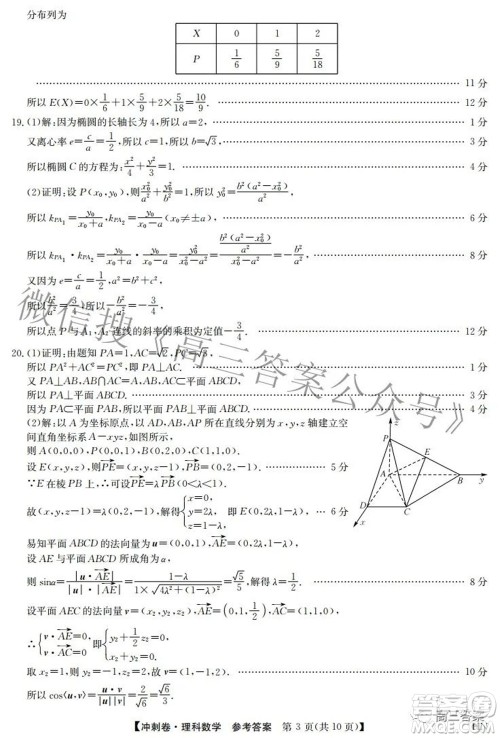 分布列为
X 0 1 2
P 1/6 5/9 5/18
11 分
所以 E(X)=0×1/6+1×5/9+2×5/18=10/9. 12 分
19.(1)解:因为椭圆的长轴长为 4,所以 a=2, 1 分
又离心率 e=c/a=1/2,所以 c=1,所以 b=√3, 3 分
所以椭圆 C 的方程为:x²/4+y²/3=1. 4 分
(2)证明:设 P(x₀,y₀),则 x₀²/a²+y₀²/b²=1,所以 y₀²=b²(a²-x₀²)/a². 5 分
所以 k_PA₁=y₀/(x₀+a),k_PA₂=y₀/(x₀-a)(x₀≠±a), 6 分
所以 k_PA₁·k_PA₂=y₀/(x₀+a)·y₀/(x₀-a)=y₀²/(x₀²-a²)=(b²(a²-x₀²)/a²)/(x₀²-a²)=-b²/a², 8 分
又因为 e=c/a=1/2,a²=b²+c²,
所以 b²/a²=3/4,所以-b²/a²=-3/4,
所以点 P 与 A₁、A₂ 连线的斜率的乘积为定值-3/4. 12 分
20.(1)证明:由题知 PA=1,AC=√2,PC=√3,
所以 PA²+AC²=PC²,即 PA⊥AC. 1 分
又 PA⊥AB,AB∩AC=A,AB,AC⊂平面 ABCD,
所以 PA⊥平面 ABCD. 3 分
因为 PA⊂平面 PAB,所以平面 PAB⊥平面 ABCD. 4 分
(2)解:以 A 为坐标原点,以 AD,AB,AP 所在直线分别为 x,y,z 轴建立空
间直角坐标系 A-xyz,如图所示,
则 A(0,0,0),P(0,0,1),C(1,1,0),B(0,2,0).
设 E(x,y,z),则PE=(x,y,z-1),PB=(0,2,-1). 5 分
∵E 在棱 PB 上,∴可设PE=λPB(0<λ<1).
故(x,y,z-1)=λ(0,2,-1),解得{x=0, y=2λ, z=1-λ, 即 E(0,2λ,1-λ). 6 分
易知平面 ABCD 的法向量为 u=(0,0,1),AE=(0,2λ,1-λ),
设 AE 与平面 ABCD 所成角为 α,
则 sinα=|u·AE|/(|u|·|AE|)=(1-λ)/(1×√(4λ²+(1-λ)²))=√5/5,解得 λ=1/2. 8 分
设平面 AEC 的法向量为 v=(x₂,y₂,z₂),AE=(0,1,1/2),AC=(1,1,0),
∴{v·AE=0, v·AC=0, 即{y₂+1/2z₂=0, x₂+y₂=0,
取 x₂=1,则 y₂=-1,z₂=2,故 v=(1,-1,2). 10 分
所以 cos⟨u,v⟩=u·v/(|u||v|)=2/√6=√6/3.
z
P
E
A
B
y
D
C
x
【冲刺卷·理科数学 参考答案 第 3 页(共 10 页)】
微信搜《高三答案公众号》
高三答案